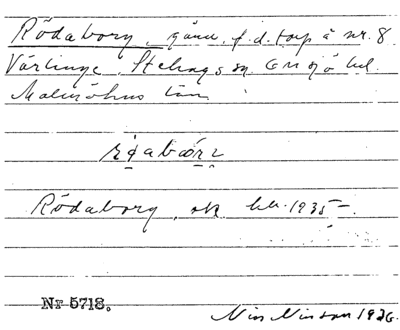 Rödaborg, gård, f.d. torp å nr. 8
Värlinge, Stehags sn, Onsjö hd.
Malmöhus län
Rödaborg, ok hb. 1935–.
Nr 5718.
Nils Nilsson 1936.